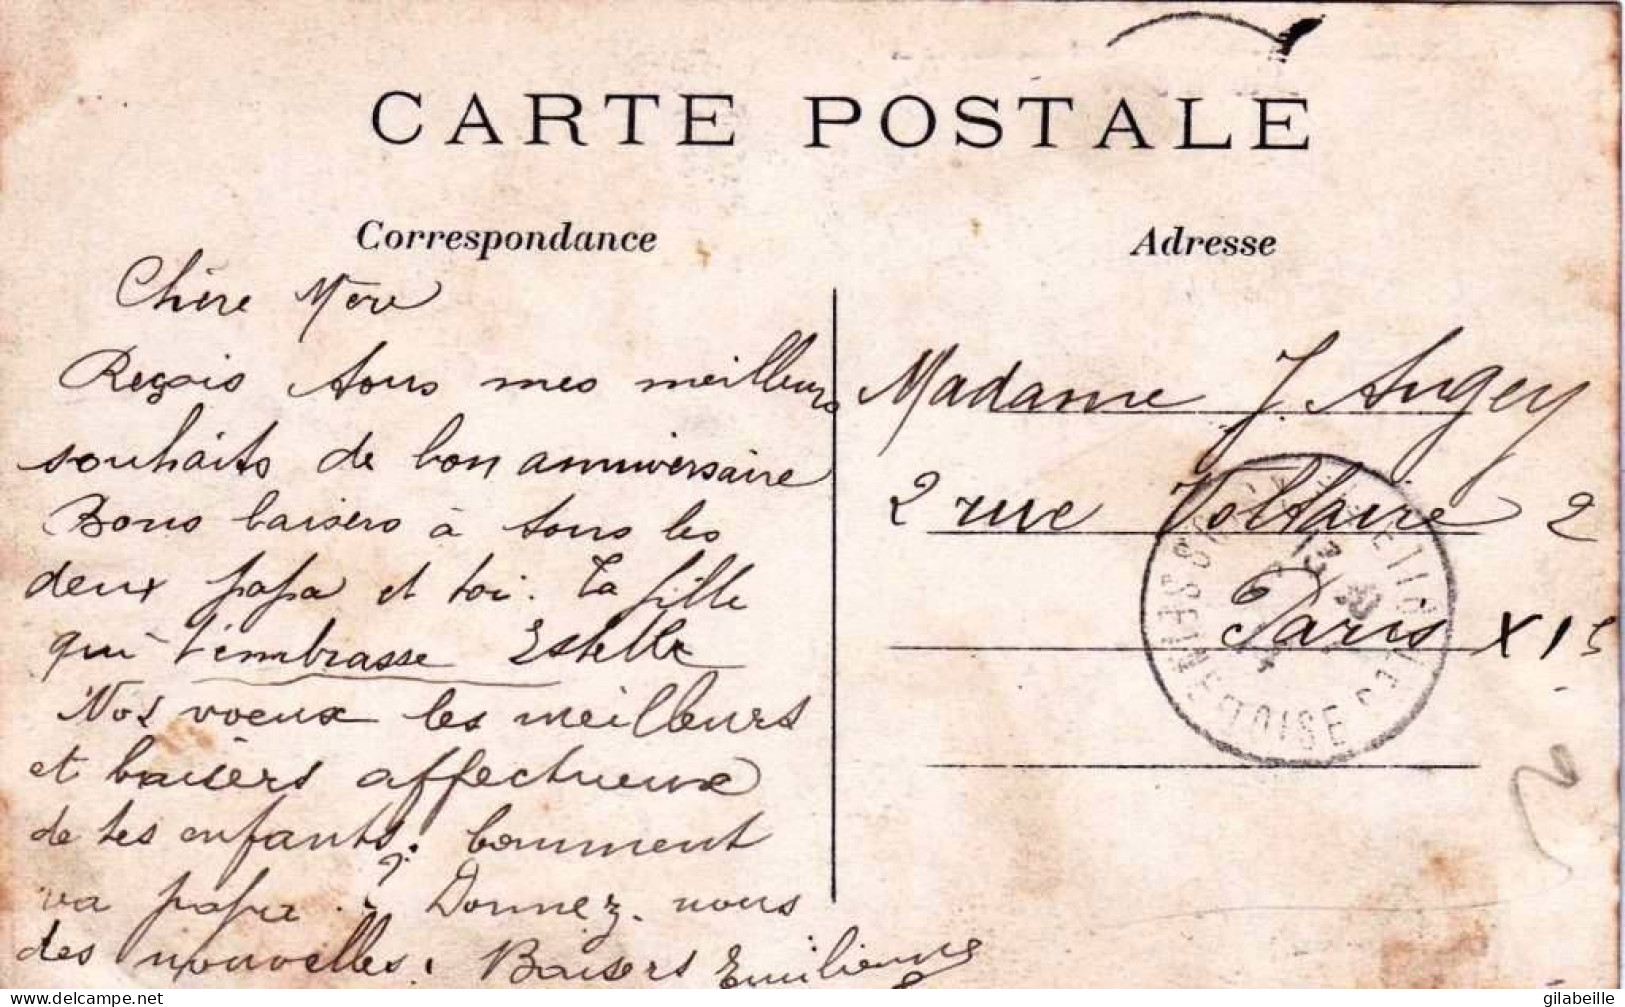 CARTE POSTALE
Correspondance
Adresse
Chère Mère
Reçois tous mes meilleurs
souhaits de bon anniversaire
Bons baisers à tous les
deux papa et toi. Ta fille
qui t'embrasse Estelle
Nos voeux les meilleurs
et baisers affectueux
de tes enfants. Comment
va papa ? Donnez. nous
des nouvelles. Baisers Emilienne
Madame J. Augey
2 rue Voltaire 2
Paris XI
SEINE-ET-OISE
delcampe.net
gilabeille